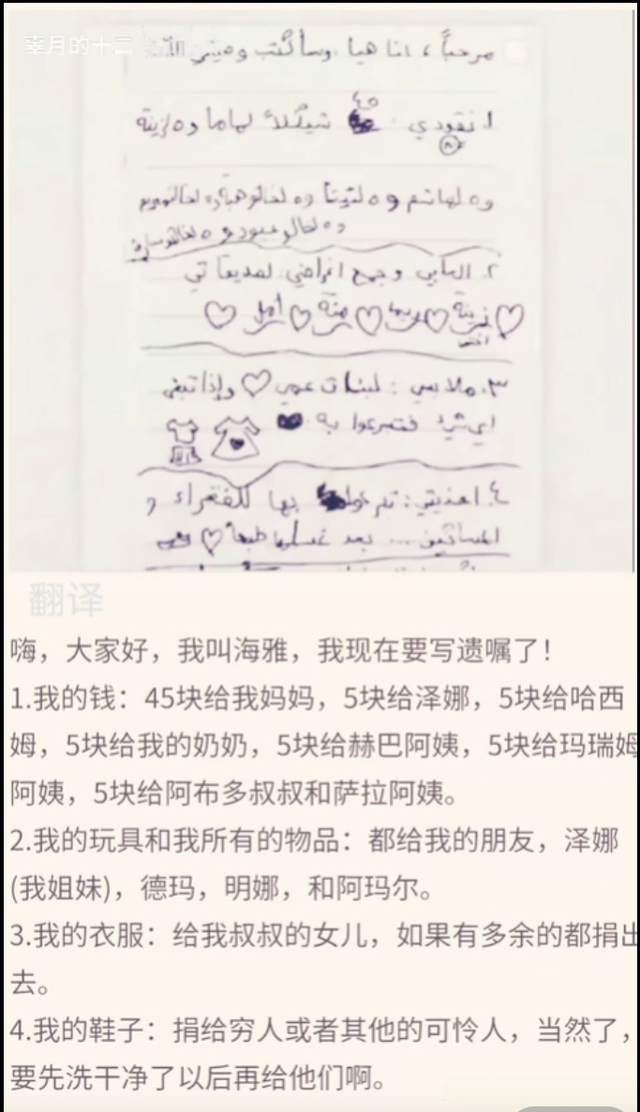 幸月的十二
مرحباً، انا هيا، وسأكتب وصيتي الآن
١. نقودي: ٤٥ شيكلاً لماما و٥ لزينة
٨٠
و٥ لهاشم و٥ لتيتا و٥ لخالتو هبة و٥ لخالتو مريم
و٥ لخالو عبود و٥ لخالتو سارة
٢. العابي وجمع اغراضي: لصديقاتي
زينة ريما منة أمل
اختي
٣. ملابسي: لبنات عمي وإذا تبقى
اي شيء فتبرعوا به
٤. احذيتي: تبرعوا بها للفقراء و
المساكين... بعد غسلها طبعاً
翻译
嗨，大家好，我叫海雅，我现在要写遗嘱了！
1.我的钱：45块给我妈妈，5块给泽娜，5块给哈西
姆，5块给我的奶奶，5块给赫巴阿姨，5块给玛瑞姆
阿姨，5块给阿布多叔叔和萨拉阿姨。
2.我的玩具和我所有的物品：都给我的朋友，泽娜
(我姐妹)，德玛，明娜，和阿玛尔。
3.我的衣服：给我叔叔的女儿，如果有多余的都捐出
去。
4.我的鞋子：捐给穷人或者其他的可怜人，当然了，
要先洗干净了以后再给他们啊。